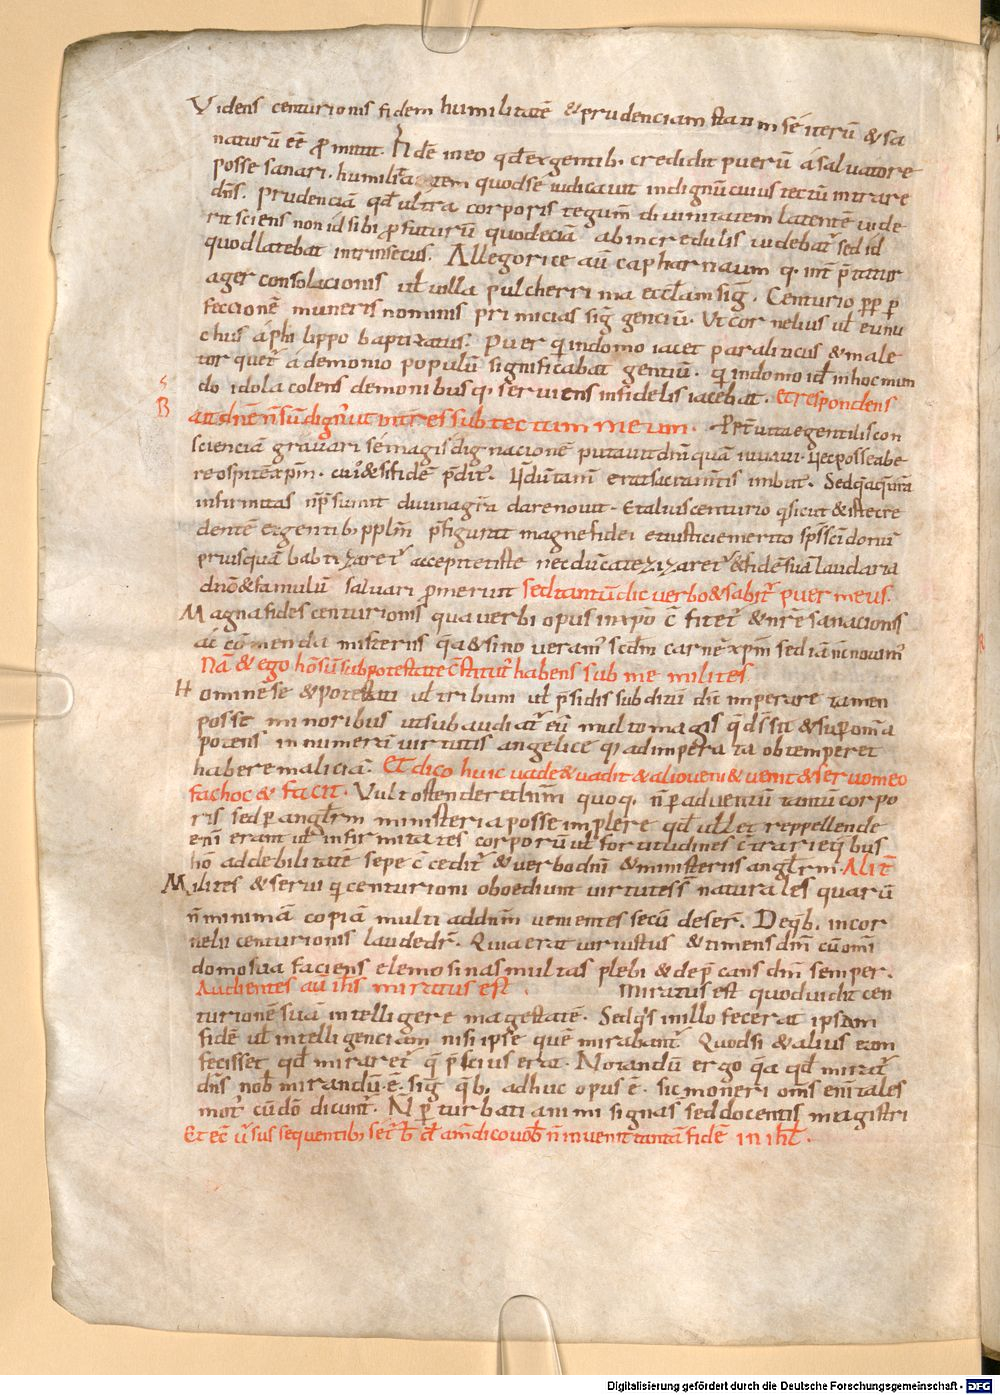 Videns centurionis fidem humilitatē &prudenciam statim se iterū &sa
naturū eē promittit. Fidē in eo qđ ex gentib; credidit puerū a saluatore
posse sanari. humilitatem quod se iudicauit indignū cuius tectū intrare
dñs. prudenciā qđ ultra corporis tegum diuinitatem latentē uide
rit sciens non id sibi profuturū quod eciā ab incredulis uidebat̄ sed id
quod latebat intrinsecus. Allegorice aū capharnaum q. int̄ p̄tatur
ager consolacionis uł uilla pulcherrima eccłam sig̅. Centurio pp̄ p̄
feccionē muneris nominis primicias sig̅ genciū. Vt cornelius uł eunu
chus a philippo baptizatus. Puer q in domo iacet paraliticus &male
torquet̄ a demonio populū significabat gentiū. q in domo id in hoc mun
do idola colens demonibusq; seruiens infidelis iacebat. Et respondens
ait dn̄e n̄ sū dign̄ ut intres sub tectum meum. Pr̄ uita gentilis con
scienciā grauari se magis dignacione putauit dn̄i quā iuuari. nec posse habe
re ospitē xp̄m. Sed q̄ aquina
infirmitas n̄ p̄sumit diuina gr̄a dare nouit. Et alius centurio q̄ sicut &iste cre
dentē ex gentib; ppl̄m p̄figurat magne fidei et iusticie merito sp̄s sc̄i donū
priusquā babtizaret̄ accepit et iste nec dū catezizaret̄ &fidē suā laudari a
dn̄o &famulū saluari p̄meruit sed tantū dic uerbo &sabit̄ puer meus.
Magna fides centurionis qua uerbi opus in xp̄o c̄fitet̄ &
Nā & ego homo sū sub potestate c̄stitut̄ habens sub me milites
Homine se &potestati uł tribuni uł p̄sidis subditū dū imperare tamen
posse minoribus ut subaudiat̄ eū multo magis q̄ d̄s sit &sup om̄ia
potens in numerū uirtutis angelice q̄ ad imperata obtemperet
habere maliciā. Et dico huic uade &uadit &alio ueni &uenit &seruo meo
fac hoc & facit. Vult ostendere dn̄m quoq; n̄ p aduentū tantū corpo
ris sed p angl̄rm ministeria posse implere qđ uellet reppellende
eni erant uł infirmitates corporū uł fortitudines c̄trarie q̄bus
ho ad debilitate sepe c̄cedit̄ &uerbo dn̄i &ministeriis angl̄rm. Alit̄
Milites &serui q centurioni oboediunt uirtutes s̄ naturales quarū
n̄ minimā copiā multi ad dn̄m uenientes secū defer̄. De q̄b. in cor
nelii centurionis laude dr̄. Quia erat uir iustus &timens dn̄i cū om̄i
domo sua faciens elemosinas multas plebi &dep̄cans dm̄ semper.
Audientes aū ih̄s miratus est . Miratus est quod uidit cen
turionē suā intelligere magestatē. Sed q̄s in illo fecerat ipsam
fidē uł intelligenciam nisi ipse quē mirabant̄. Quodsi &alius eam
fecisset qđ miraret̄ q̄ p̄scius erat. Notandū ergo q̄a qđ mirat̄
dn̄s nob mirandū. ē. sig̅ q̄b; adhuc opus ē. sic moneri oms̄ eni tales
mot̄ cū dō dicunt̄. N̄ p̄turbati animi signa s̄ sed docentis magistri
Et ec̄ ū̄sus sequentib; set̄ am̄ dico uob n̄ inueni tantā fidē in ih̄ł.
Digitalisierung gefördert durch die Deutsche Forschungsgemeinschaft - DFG